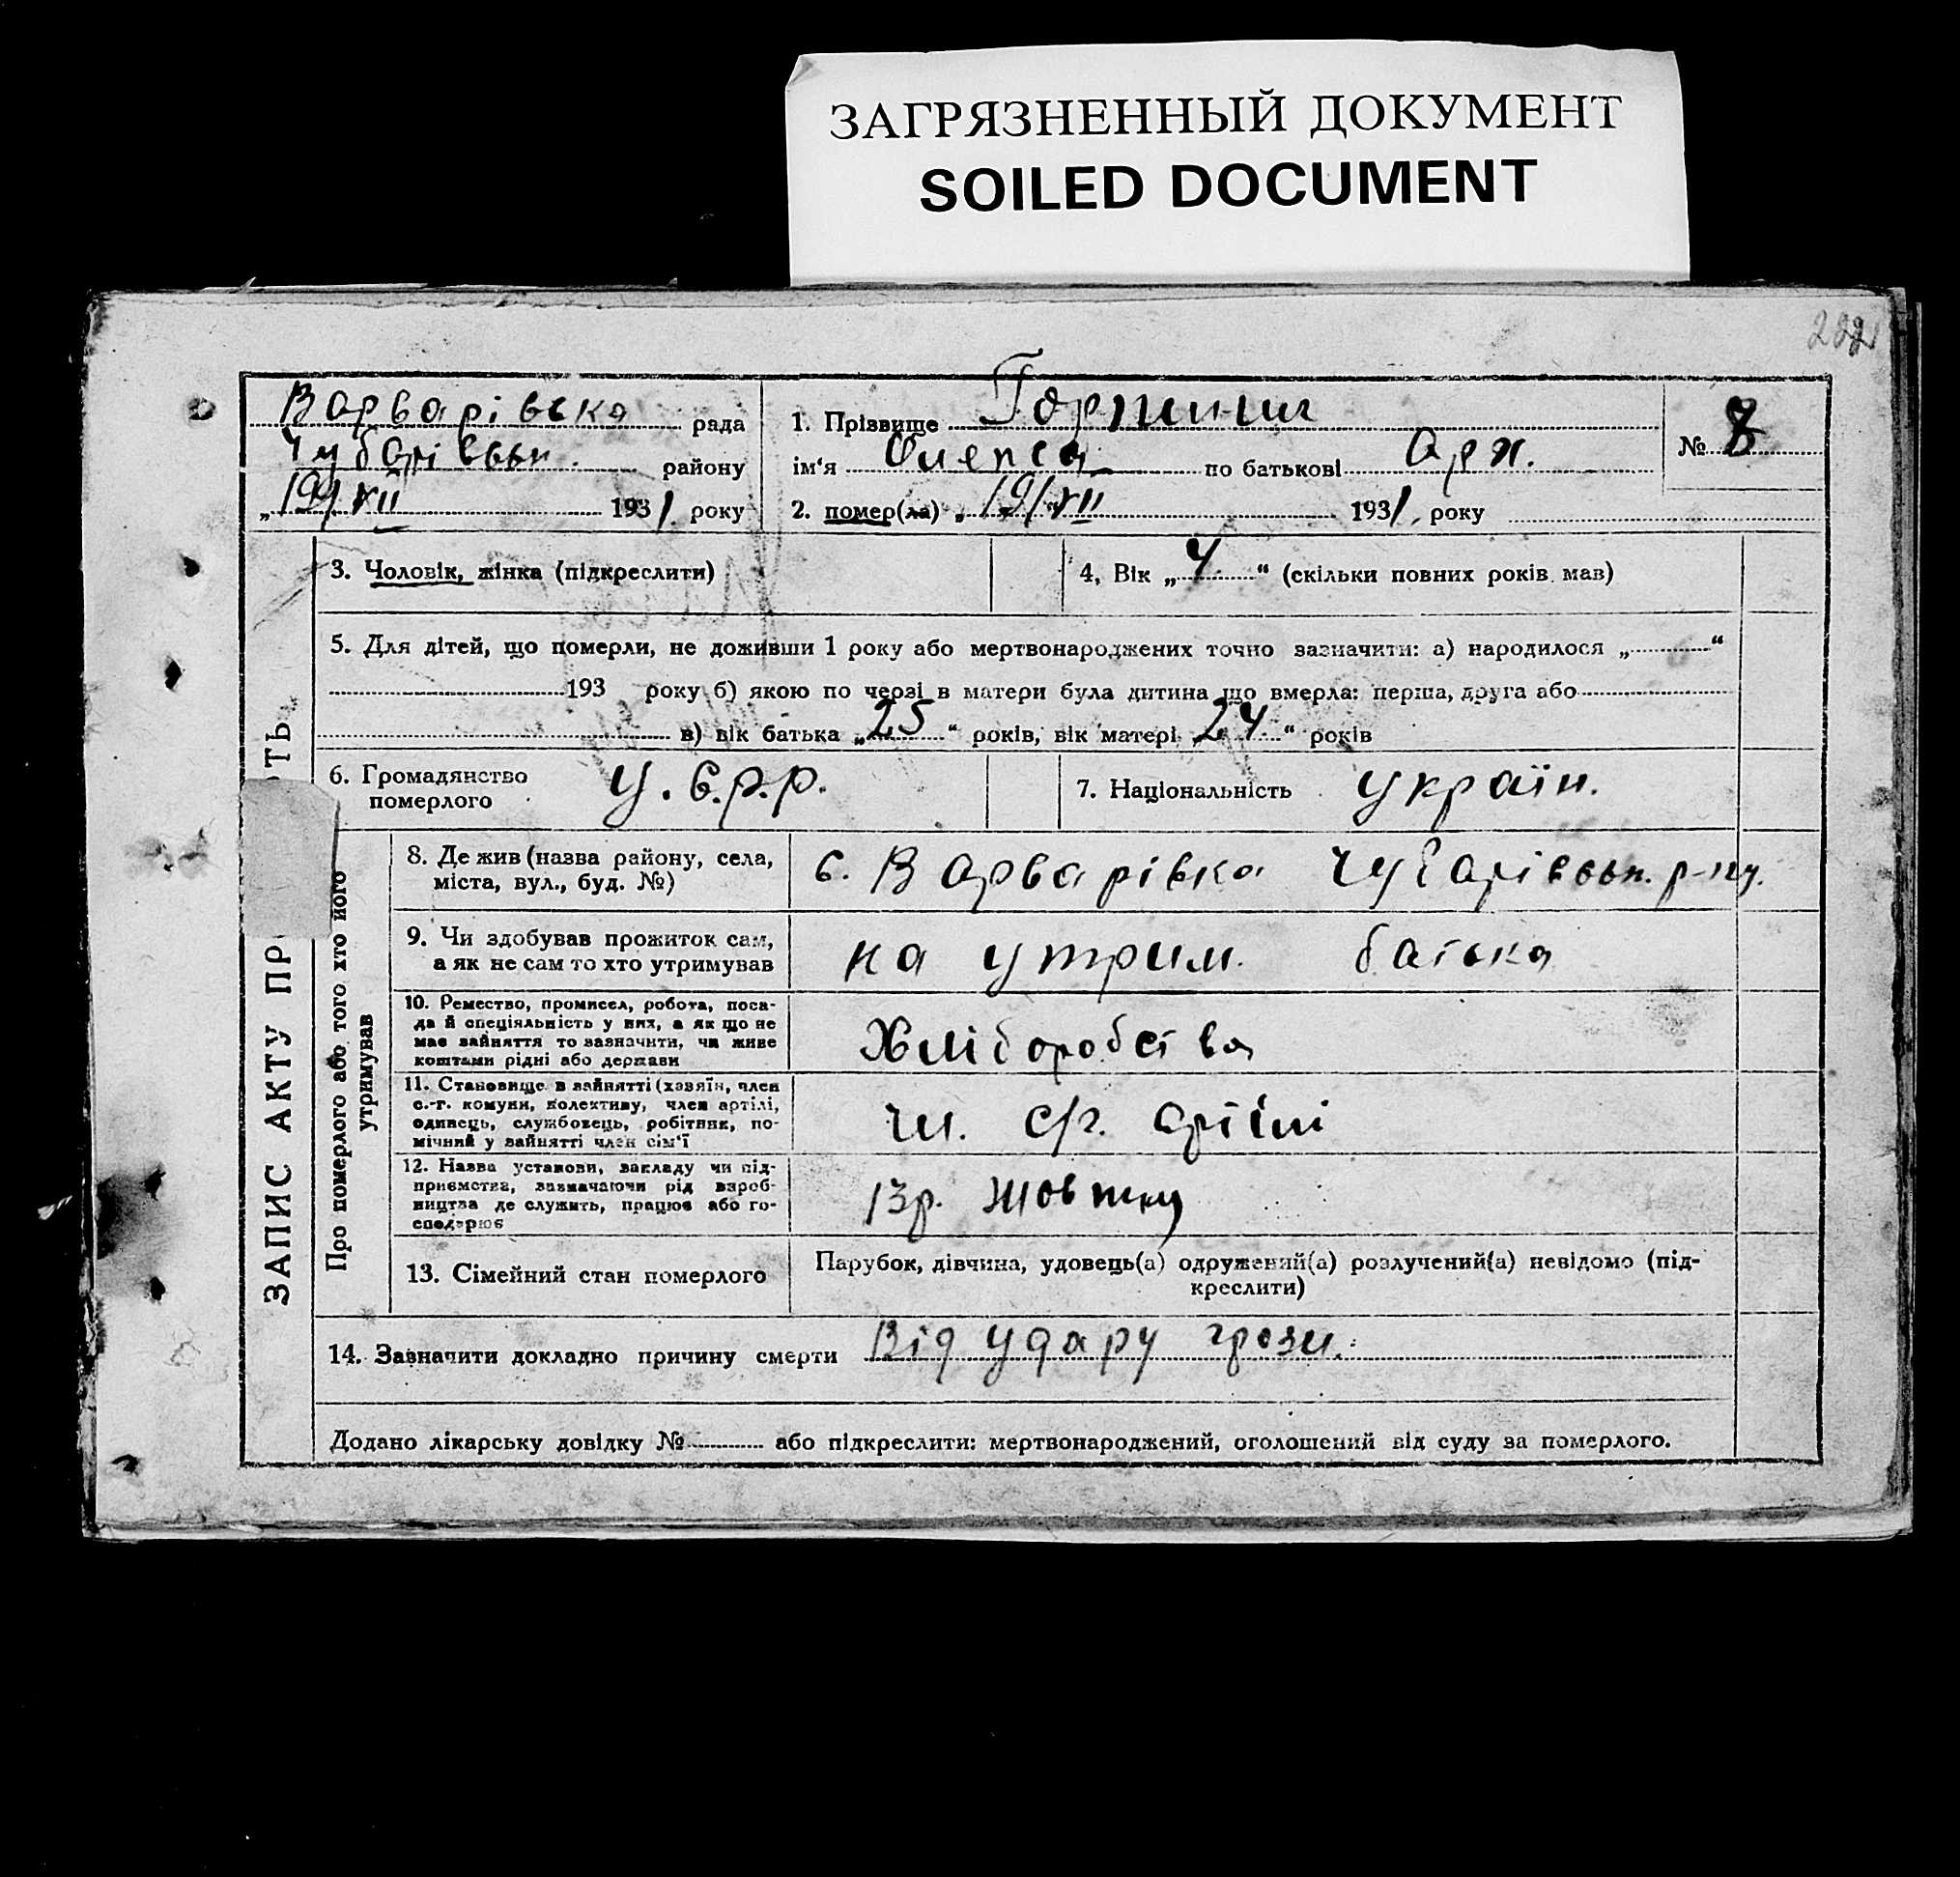 ЗАГРЯЗНЕННЫЙ ДОКУМЕНТ
SOILED DOCUMENT
Варварівська рада
Чубарівськ. району
„19/VII 1931. року
1. Прізвище
ім‘я Олекса по батькові
№
2. помер(ла) „19/VII 1931. року
3. Чоловік, жінка (підкреслити)
4, Вік „4“ (скільки повних років мав)
5. Для дітей, що померли, не доживши 1 року або мертвонароджених точно зазначити: а) народилося „ “
193 року б) якою по черзі в матери була дитина що вмерла: перша, друга або
в) вік батька „25“ років, вік матері „24“ років
6. Громадянство
померлого
У.С.Р.Р.
7. Національність україн.
ЗАПИС АКТУ ПР
РТЬ
Про померлого або того хто його
утримував
8. Де жив (назва району, села,
міста, вул., буд. №)
с. Варварівка Чубарівськ. р-ну.
9. Чи здобував прожиток сам,
а як не сам то хто утримував
на утрим. батька
10. Ремество, промисел, робота, поса-
да й спеціяльність у них, а як що не
має зайняття то зазначити, чи живе
коштами рідні або держави
Хліборобства
11. Становище в зайнятті (хазяїн, член
с.-г. комуни, колективу, член артілі,
одинець, службовець, робітник, по-
мічний у зайнятті член сім‘ї
чл. с/г. артілі
12. Назва установи, закладу чи під-
приємства, зазначаючи рід вироб-
ництва де служить, працює або го-
сподарює
13р. Жовтню
13. Сімейний стан померлого
Парубок, дівчина, удовець(а) одружений(а) розлучений(а) невідомо (під-
креслити)
14. Зазначити докладно причину смерти Від удару грози.
Додано лікарську довідку № або підкреслити: мертвонароджений, оголошений від суду за померлого.